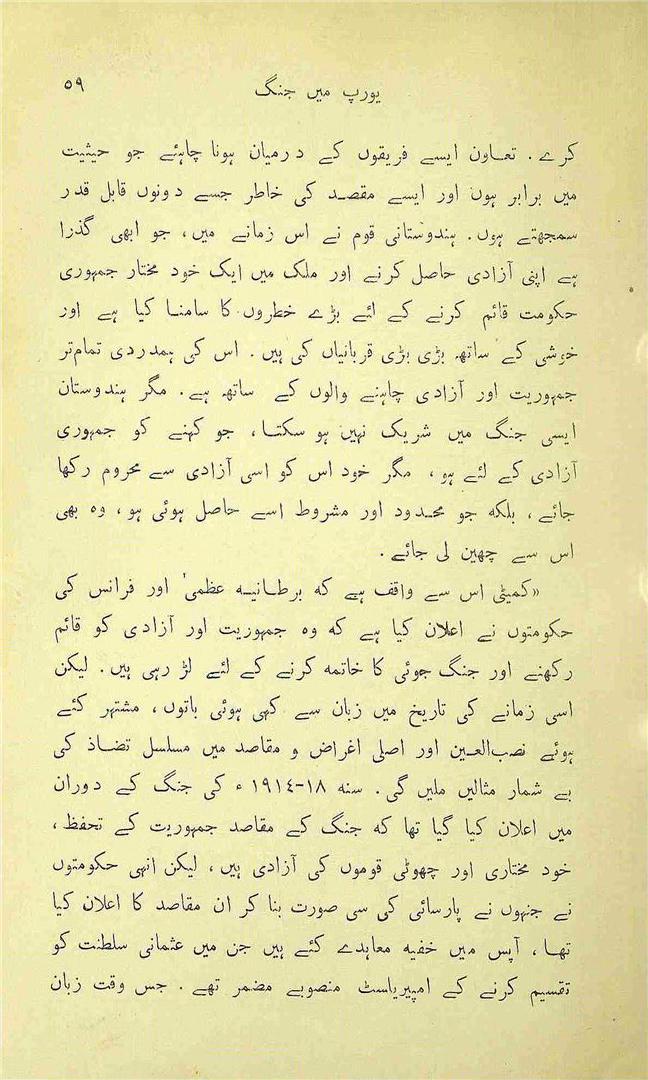 یورپ میں جنگ ۵۹
کرے۔ تعاون ایسے فریقوں کے درمیان ہونا چاہئے جو حیثیت
میں برابر ہوں اور ایسے مقصد کی خاطر جسے دونوں قابل قدر
سمجھتے ہوں۔ ہندوستانی قوم نے اس زمانے میں، جو ابھی گذرا
ہے اپنی آزادی حاصل کرنے اور ملک میں ایک خود مختار جمہوری
حکومت قائم کرنے کے لئے بڑے خطروں کا سامنا کیا ہے اور
خوشی کے ساتھ بڑی بڑی قربانیاں کی ہیں۔ اس کی ہمدردی تمام‌تر
جمہوریت اور آزادی چاہنے والوں کے ساتھ ہے۔ مگر ہندوستان
ایسی جنگ میں شریک نہیں ہو سکتا، جو کہنے کو جمہوری
آزادی کے لئے ہو، مگر خود اس کو اسی آزادی سے محروم رکھا
جائے، بلکہ جو محدود اور مشروط اسے حاصل ہوئی ہو، وہ بھی
اس سے چھین لی جائے۔
«کمیٹی اس سے واقف ہے کہ برطانیہ عظمیٰ اور فرانس کی
حکومتوں نے اعلان کیا ہے کہ وہ جمہوریت اور آزادی کو قائم
رکھنے اور جنگ جوئی کا خاتمہ کرنے کے لئے لڑ رہی ہیں۔ لیکن
اسی زمانے کی تاریخ میں زبان سے کہی ہوئی باتوں، مشتہر کئے
ہوئے نصب‌العین اور اصلی اغراض و مقاصد میں مسلسل تضاد کی
بے شمار مثالیں ملیں گی۔ سنہ ١٨-١٩١٤ ء کی جنگ کے دوران
میں اعلان کیا گیا تھا کہ جنگ کے مقاصد جمہوریت کے تحفظ،
خود مختاری اور چھوٹی قوموں کی آزادی ہیں، لیکن انہی حکومتوں
نے جنہوں نے پارسائی کی سی صورت بنا کر ان مقاصد کا اعلان کیا
تھا، آپس میں خفیہ معاہدے کئے ہیں جن میں عثمانی سلطنت کو
تقسیم کرنے کے امپیریلسٹ منصوبے مضمر تھے۔ جس وقت زبان